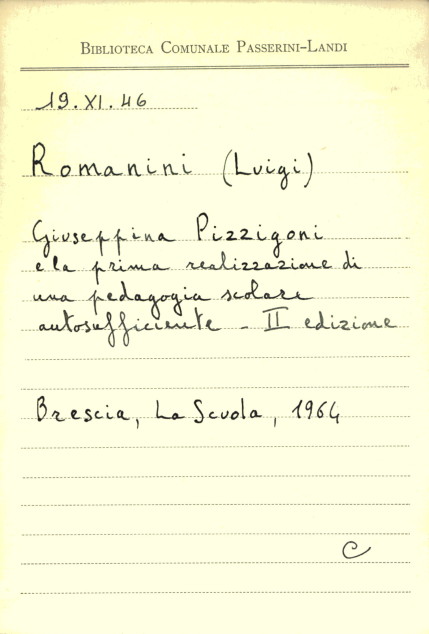 BIBLIOTECA COMUNALE PASSERINI-LANDI
19.XI.46
Romanini (Luigi)
Giuseppina Pizzigoni
e la prima realizzazione di
una pedagogia scolare
autosufficiente - II edizione
Brescia, La Scuola, 1964
C